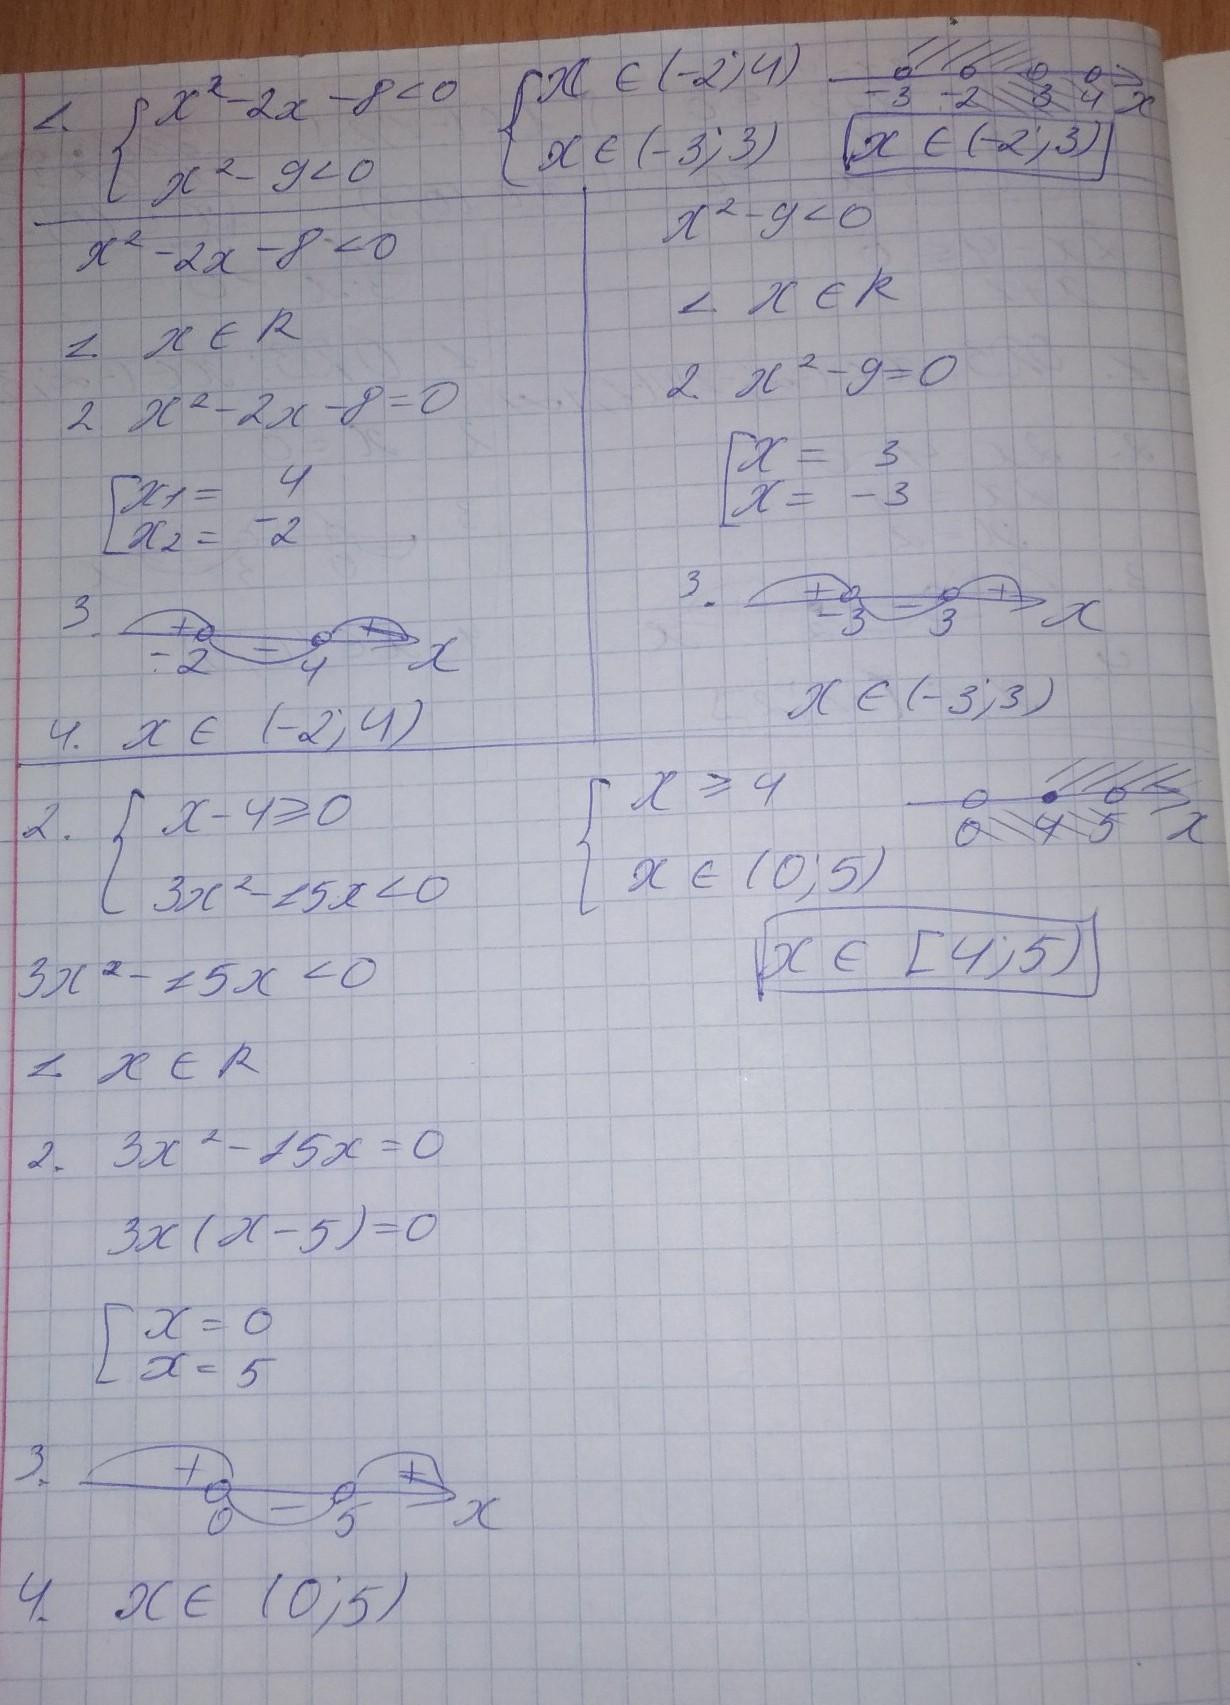 1. { x² - 2x - 8 < 0
x² - 9 < 0
{ x ∈ (-2; 4)
x ∈ (-3; 3)
-3 -2 3 4 x
x ∈ (-2; 3)
x² - 2x - 8 < 0
1. x ∈ R
2 x² - 2x - 8 = 0
[ x1 = 4
x2 = -2
3. + - + x
-2 4
4. x ∈ (-2; 4)
x² - 9 < 0
1. x ∈ R
2. x² - 9 = 0
[ x = 3
x = -3
3. + - + x
-3 3
x ∈ (-3; 3)
2. { x - 4 ≥ 0
3x² - 15x < 0
{ x ≥ 4
x ∈ (0; 5)
0 4 5 x
x ∈ [4; 5)
3x² - 15x < 0
1. x ∈ R
2. 3x² - 15x = 0
3x(x - 5) = 0
[ x = 0
x = 5
3. + - + x
0 5
4. x ∈ (0; 5)